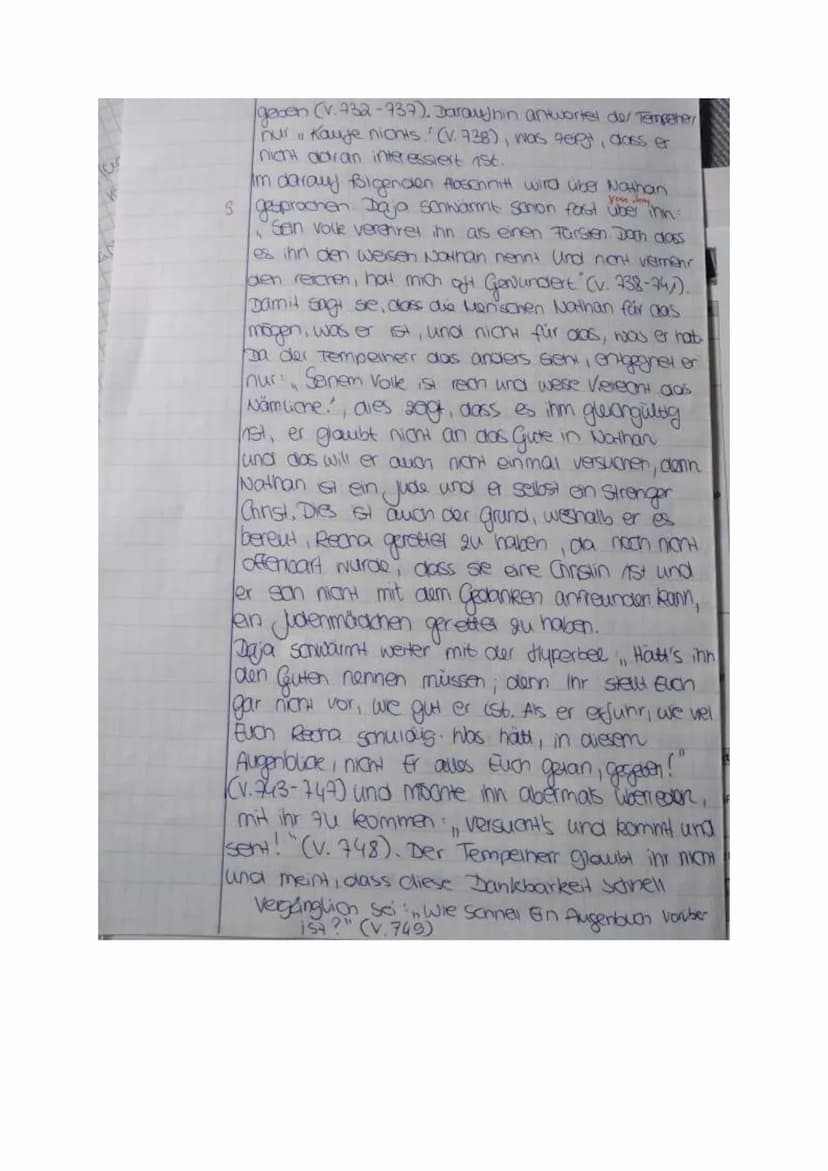 geben (V. 732-737). Daraufhin antwortet der Tempelherr
nur „Kaufe nichts." (V. 738), was zeigt, dass er
nicht daran interessiert ist.
Im darauf folgenden Abschnitt wird über Nathan
von ihm
S gesprochen. Daja schwärmt schon fast über ihn:
„Sein Volk verehret ihn als einen Fürsten. Doch dass
es ihn den Weisen Nathan nennt Und nicht vielmehr
den reichen, hat mich oft Gewundert." (V. 738-741).
Damit sagt sie, dass die Menschen Nathan für das
mögen, was er ist, und nicht für das, was er hat.
Da der Tempelherr das anders sieht, entgegnet er
nur: „Seinem Volk ist reich und weise Vielleicht das
Nämliche.", dies zeigt, dass es ihm gleichgültig
ist, er glaubt nicht an das Gute in Nathan
und das will er auch nicht einmal versuchen, denn
Nathan ist ein Jude und er selbst ein Strenger
Christ. Dies ist auch der Grund, weshalb er es
bereut, Recha gerettet zu haben, da noch nicht
offenbart wurde, dass sie eine Christin ist und
er sich nicht mit dem Gedanken anfreunden kann,
ein Judenmädchen gerettet zu haben.
Daja schwärmt weiter mit der Hyperbel „Hätt's ihn
den Guten nennen müssen; denn Ihr stellt Euch
gar nicht vor, wie gut er ist. Als er erfuhr, wie viel
Euch Recha schuldig: was hätt, in diesem
Augenblicke, nicht Er alles Euch getan, gegeben!"
(V. 743-747) und möchte ihn abermals überreden,
mit ihr zu kommen: „Versucht's und kommt und
seht!" (V. 748). Der Tempelherr glaubt ihr nicht
und meint, dass diese Dankbarkeit schnell
vergänglich sei: „Wie schnell Ein Augenblick vorüber
ist?" (V. 749)